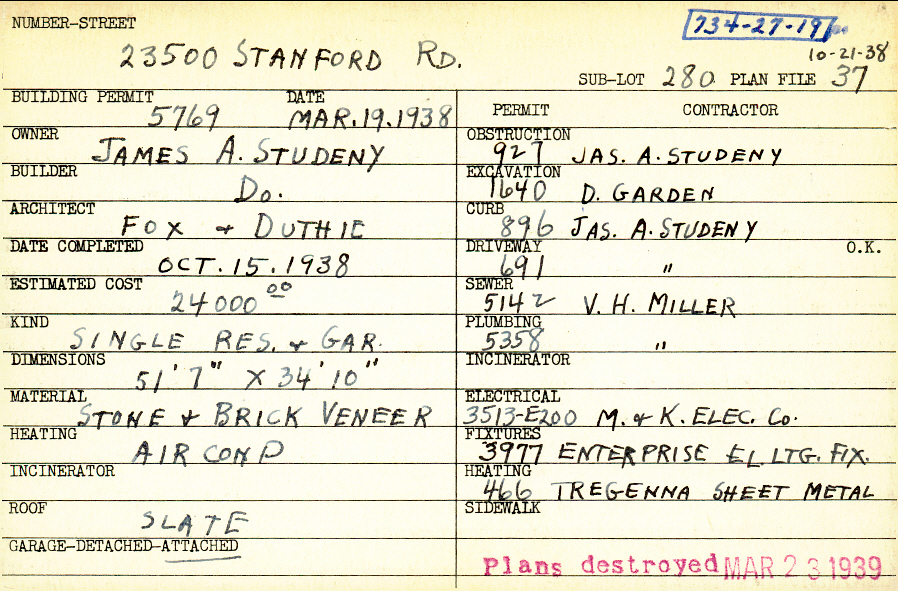 NUMBER-STREET
734-27-19
10-21-38
23500 STANFORD RD.
SUB-LOT 280 PLAN FILE 37
BUILDING PERMIT DATE
5769 MAR.19.1938
OWNER
JAMES A. STUDENY
BUILDER
Do.
ARCHITECT
FOX & DUTHIE
DATE COMPLETED
OCT. 15. 1938
ESTIMATED COST
24000 00
KIND
SINGLE RES. & GAR.
DIMENSIONS
51' 7" X 34' 10"
MATERIAL
STONE & BRICK VENEER
HEATING
AIR COND
INCINERATOR
ROOF
SLATE
GARAGE-DETACHED-ATTACHED
PERMIT CONTRACTOR
OBSTRUCTION
927 JAS. A. STUDENY
EXCAVATION
1640 D. GARDEN
CURB
896 JAS. A. STUDENY
DRIVEWAY O.K.
691 "
SEWER
5142 V. H. MILLER
PLUMBING
5358 "
INCINERATOR
ELECTRICAL
3513-E200 M. & K. ELEC. Co.
FIXTURES
3977 ENTERPRISE EL LTG. FIX.
HEATING
466 TREGENNA SHEET METAL
SIDEWALK
Plans destroyed MAR 23 1939